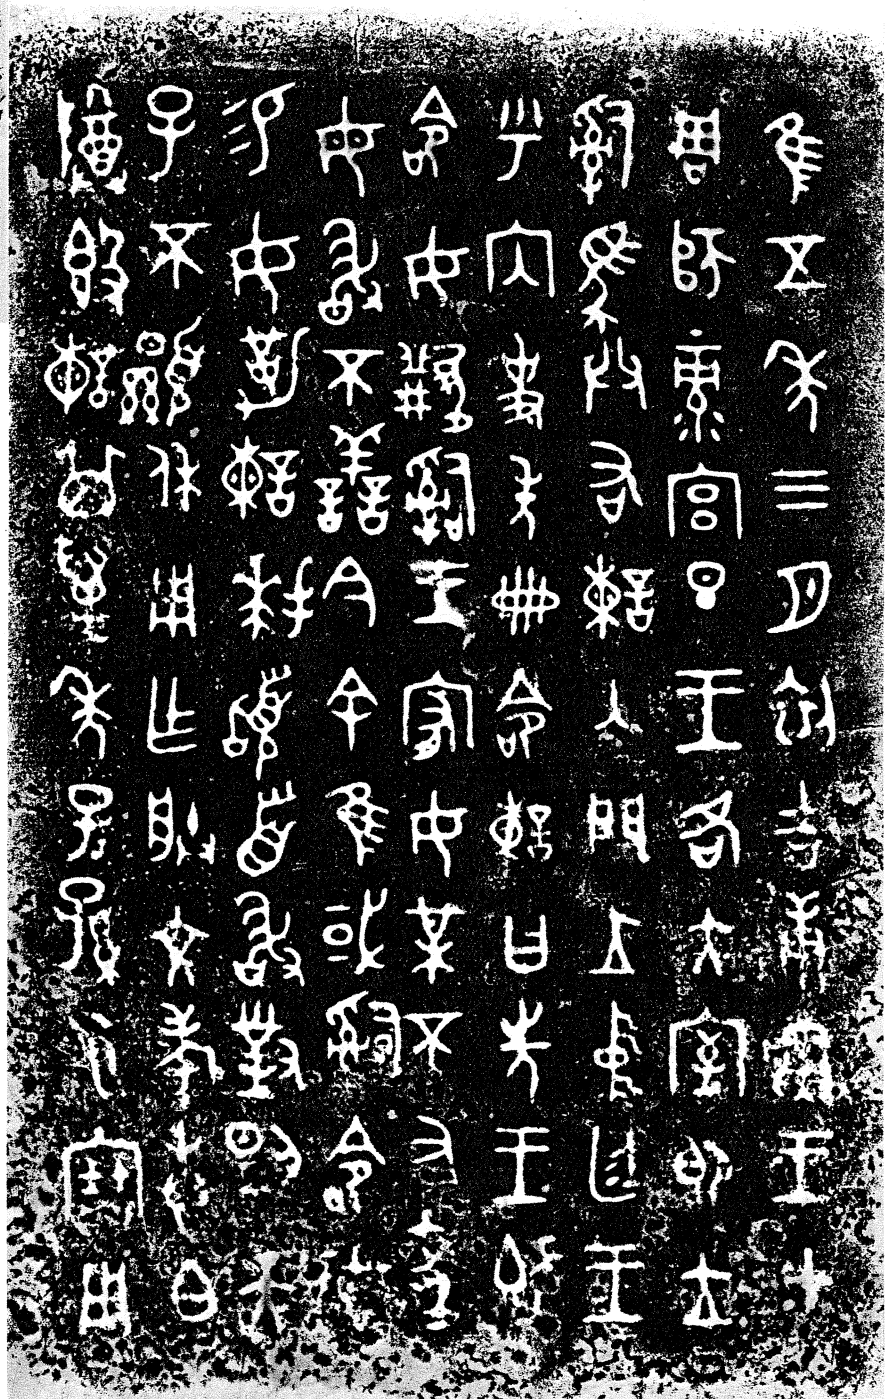 隹五年三月初吉庚寅王才
周師彔宮旦王各大室即立
𤔲馬共右諫入門立中廷王
乎内史冊命諫曰先王既
命女𤔲王宥女某不又聞
母敢不善今余隹或𤔲命女
易女勒諫拜𩒨首敢對揚天
子不顯休用乍朕文考惠白
尊𣪘諫其萬年子孫永寶用